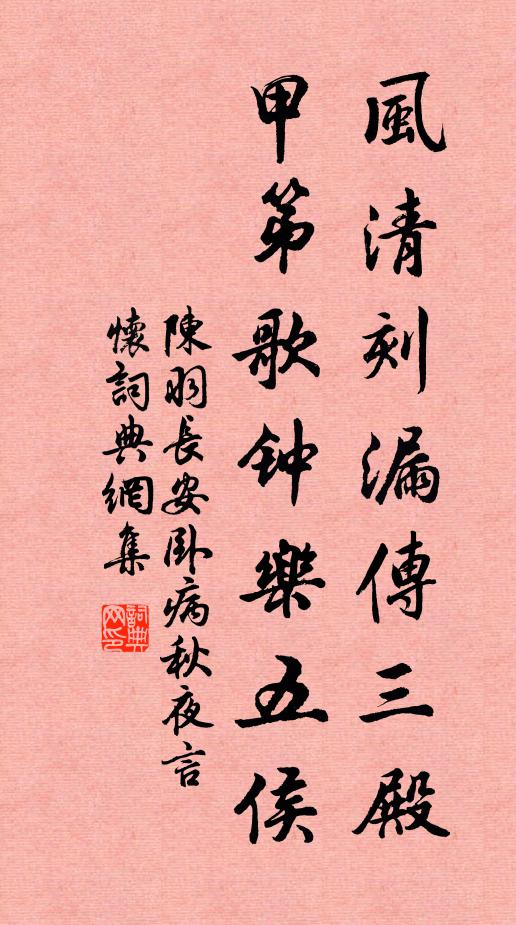 風清刻漏傳三殿
甲第歌钟樂五侯
陳羽長安卧病秋夜言
懷詞典網集
詞典网印